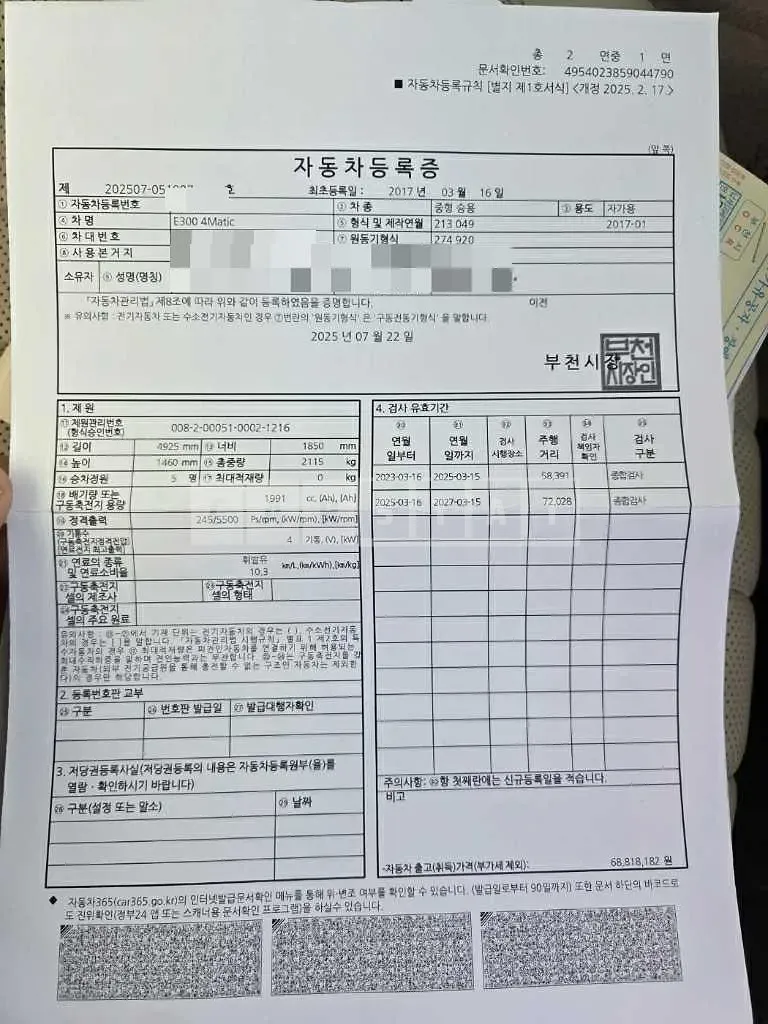 총 2 면중 1 면
문서확인번호: 4954023859044790
■ 자동차등록규칙 [별지 제1호서식] <개정 2025. 2. 17.>
(앞 쪽)
자동차등록증
제 202507-05 호 최초등록일 : 2017 년 03 월 16 일
① 자동차등록번호 ② 차 종 중형 승용 ③ 용도 자가용
④ 차 명 E300 4Matic ⑤ 형식 및 제작연월 213 049 2017-01
⑥ 차 대 번 호 ⑦ 원동기형식 274 920
⑧ 사 용 본 거 지
소유자 ⑨ 성명(명칭)
「자동차관리법」제8조에 따라 위와 같이 등록하였음을 증명합니다. 이전
※ 유의사항 : 전기자동차 또는 수소전기자동차인 경우 ⑦번란의 '원동기형식' 은 '구동전동기형식' 을 말합니다.
2025 년 07 월 22 일
부천시장
부천
시장인
1. 제 원
⑪ 제원관리번호
(형식승인번호)
008-2-00051-0002-1216
⑫ 길이 4925 mm ⑬ 너비 1850 mm
⑭ 높이 1460 mm ⑮ 총중량 2115 kg
⑯ 승차정원 5 명 ⑰ 최대적재량 0 kg
⑱ 배기량 또는
구동축전지 용량
1991 cc, (Ah), [Ah]
⑲ 정격출력 245/5500 Ps/rpm, (kW/rpm), [kW/rpm]
⑳ 기통수
(구동축전지정격전압)
[연료전지 최고출력]
4 기통, (V), [kW]
㉑ 연료의 종류
및 연료소비율
휘발유
10.3 ㎞/L, (㎞/kWh), [㎞/kg]
㉒ 구동축전지
셀의 제조사
㉓ 구동축전지
셀의 형태
㉔ 구동축전지
셀의 주요 원료
2. 등록번호판 교부
㉕ 구분 ㉖ 번호판 발급일 ㉗ 발급대행자확인
3. 저당권등록사실(저당권등록의 내용은 자동차등록원부(을)를
열람ㆍ확인하시기 바랍니다)
㉘ 구분(설정 또는 말소) ㉙ 날짜
4. 검사 유효기간
㉚ ㉛ ㉜ ㉝ ㉞ ㉟
연월
일부터
연월
일까지
검사
시행장소
주행
거리
검사
책임자
확인
검사
구분
2023-03-16 2025-03-15 58,391 종합검사
2025-03-16 2027-03-15 72,028 종합검사
주의사항: ㉚항 첫째란에는 신규등록일을 적습니다.
비고
-자동차 출고(취득)가격(부가세 제외): 68,818,182 원
◆ 자동차365(car365.go.kr)의 인터넷발급문서확인 메뉴를 통해 위·변조 여부를 확인할 수 있습니다. (발급일로부터 90일까지) 또한 문서 하단의 바코드로
도 진위확인(정부24 앱 또는 스캐너용 문서확인 프로그램)을 하실수 있습니다.